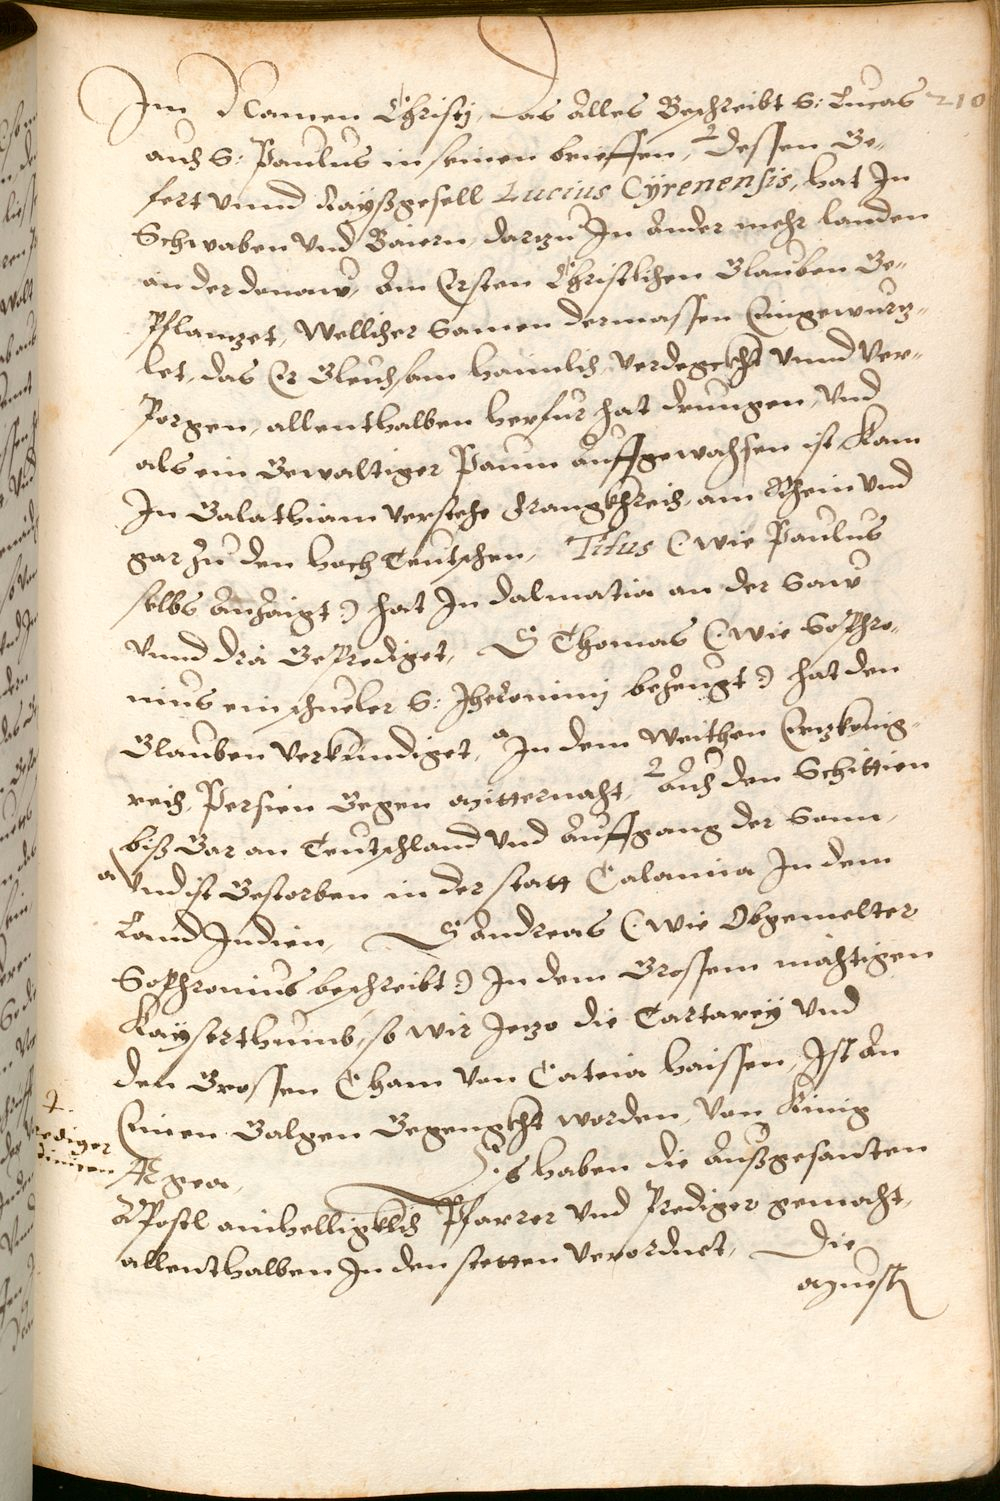 Im Namen Christj, das alles Beschreibt S: Lucas 210
auch S: Paulus in seinen brieffen, 2 dessen Ge-
fert vnnd Rayßgesell Lucius Cyrenensis, hat In
Schwaben vnd Baiern, darzu In ander mehr landen
an der donaw, Am Ersten Christlichen Glauben Ge-
Pflanzet, Wellicher Samen dermassen Eingewurz-
let, das Er Gleichsam haimlich, verdegckht vnnd Ver-
Porgen, allenthalben herfur hat drungen, vnd
als ein Gewaltiger Paum auffgewachsen ist Kam
In Galathiam verstehe Frangkhreich, am Rhein vnd
gar zu den hoch Teutschen, Titus (: wie Paulus
selbs Anzaigt :) hat In dalmatia an der Saw
vnnd dra GePrediget, S Thomas (: wie SoPhro-
nius ein schueler S: Jheronimj bezeugt :) hat den
Glauben verkundiget, a In dem Weithen Erzkönig-
reich, Persien Gegen mitternacht, 2 auch den Schittien
biß Gar an Teutschland vnd Auffgang der Sonn,
a vnd ist Gestorben in der statt Calamia In dem
Land Indien, S Andreas (: wie Obgemelter
SoPhronius beschreibt :) In dem Grossem mächtigen
Kayserthumb, so wir Jezo die Tartarey vnd
den Grossen Cham von Cateia haissen, Ist An
Einen Galgen Gegengckht worden, von Kinig
Ægea, Es haben die Außgesanten
2.
rediger
APostl ainhelligklich Pfarrer vnd Prediger gemacht,
allenthalben In den stetten verordnet, Die
muest